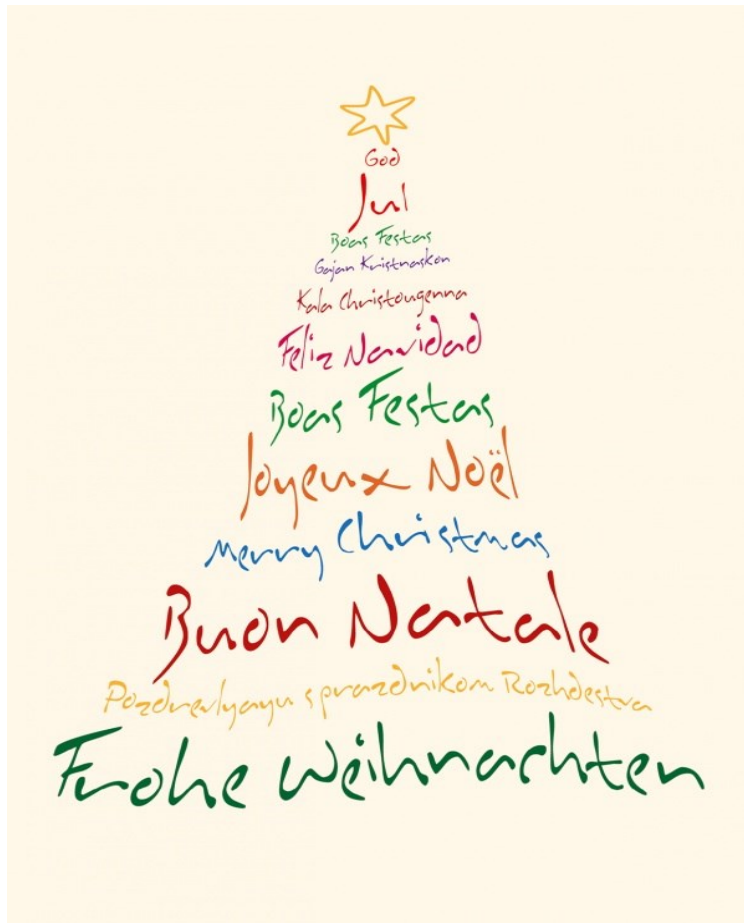 God
Jul
Boas Festas
Gajan Kristnaskon
Kala Christougenna
Feliz Navidad
Boas Festas
Joyeux Noël
Merry Christmas
Buon Natale
Pozdrevlyayu s prazdnikom Rozhdestva
Frohe Weihnachten